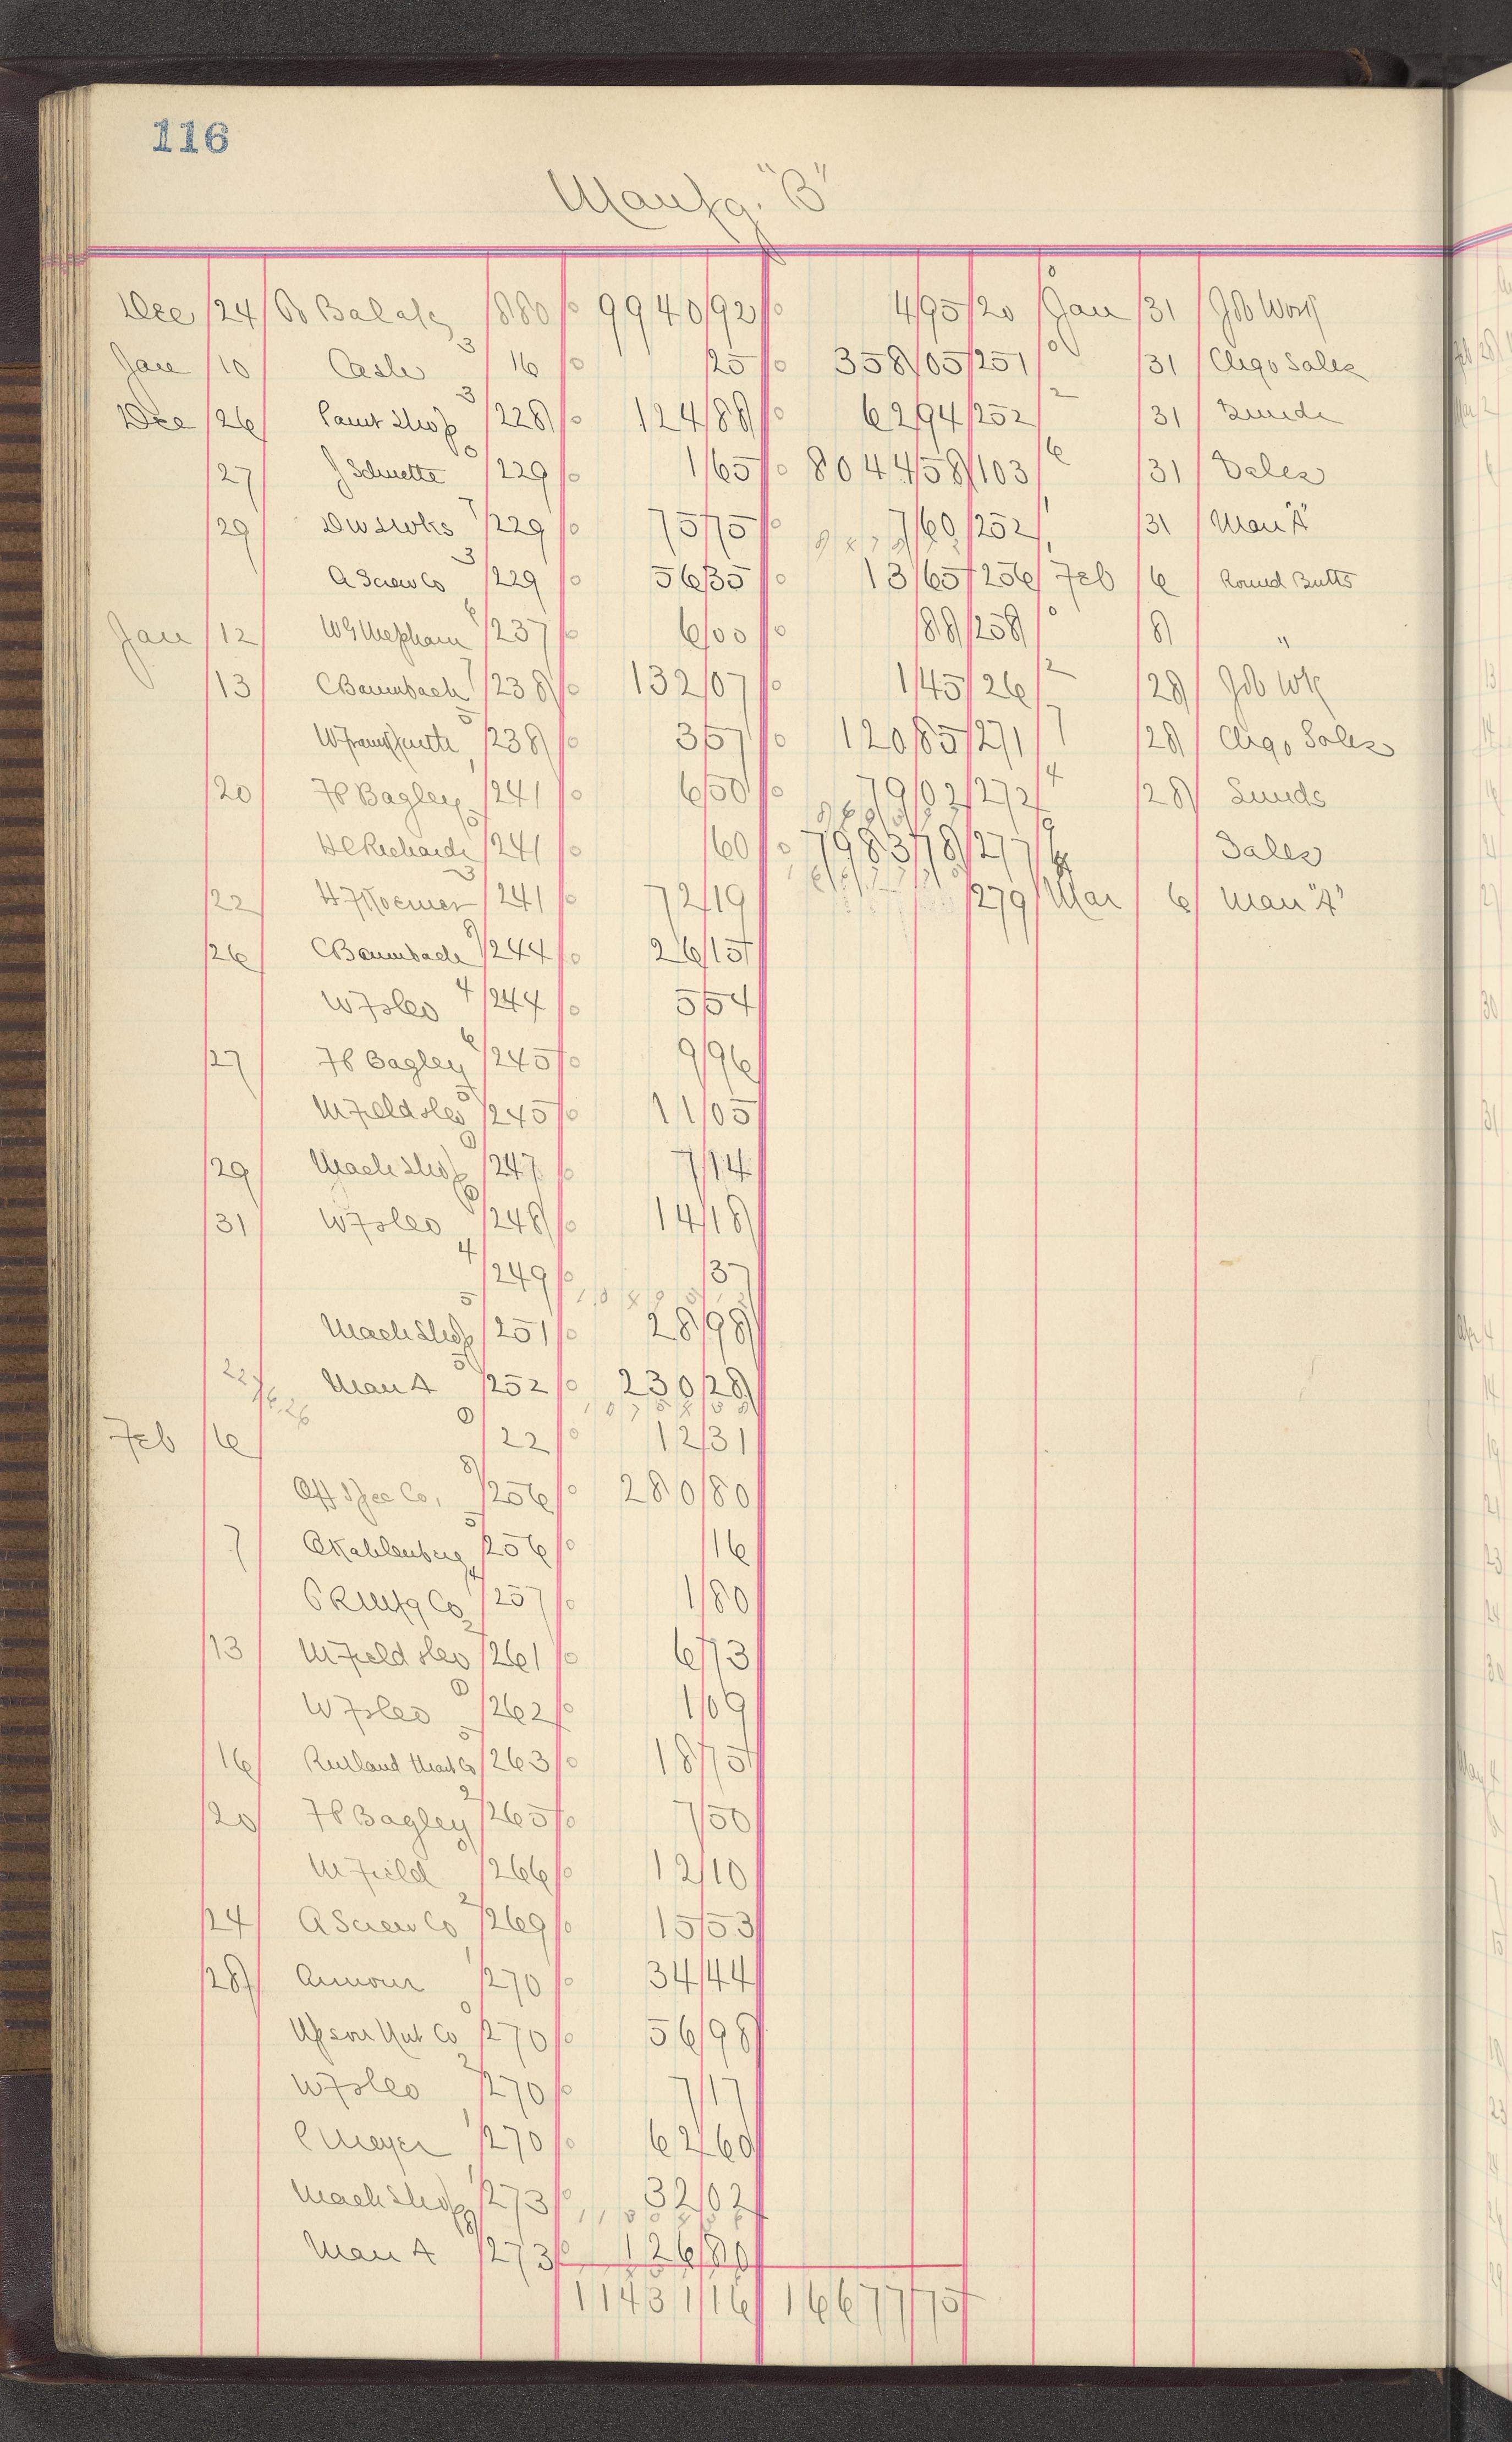 116
Manfg. "B"
Dec /24/ Balafs /880/ 9940/92/ 4/95/20 /Jan /31 / Job Work
Jan /10/ Cash 3/16/ /25/ 358/05/251/ /31 / Chigo Sales
Dec /26/ Paint Shop 3/228/ 124/88/ 62/94/252/ /31 / Sunds
/27/ J Schuette /229/ 1/65/ 8044/58/103/ /31 / Sales
/29/ 7/229/ 75/75/ 7/60/252/ /31 / Man "A"
A Screw Co 3/229/ 56/35/ 13/65/256/ Feb /6 / Round Butts
Jan /12/ W G Mepham 6/237/ 6/00/ /88/258/ /8/ "
/13/ C Baumbach 7/238/ 132/07/ 1/45/26/ /28/ Job Wk
/238/ 3/57/ 120/85/271/ /28/ Chigo Sales
/20/ F P Bagley /241/ 6/50/ 79/02/272/ /28/ Sunds
H C Richards /241/ /60/ 7983/78/277/ Sales
/22/ 3/241/ 72/19/ /279/ Mar /6/ Man "A"
/26/ C Baumbach 8/244/ 26/15/
W F sles 4/244/ 5/54/
/27/ F P Bagley 6/245/ 9/96/
M Field sles 5/245/ 11/05/
/29/ Mach Shop /247/ 7/14/
/31/ W F sles /248/ 14/18/
4/249/ /37/
Mach Shop /251/ 28/98/
Man A 5/252/ 230/28/
Feb /6/ /22/ 12/31/
Off Spec Co, 8/256/ 280/80/
7/ C Kahlenberg /256/ /16/
C R Mfg Co /257/ 1/80/
/13/ M Field sles 2/261/ 6/73/
W F sles /262/ 1/09/
16/ Rutland /263/ 18/75/
/20/ F P Bagley 2/265/ 7/50/
M Field /266/ 12/10/
/24/ A Screw Co 2/269/ 15/53/
/28/ Armour /270/ 34/44/
Upson Nut Co /270/ 56/98/
W F sles 2/270/ 7/17/
C Meyer /270/ 62/60/
Mach Shop /273/ 32/02/
Man A 8/273/ 126/80/
11431/16/ 16677/75/